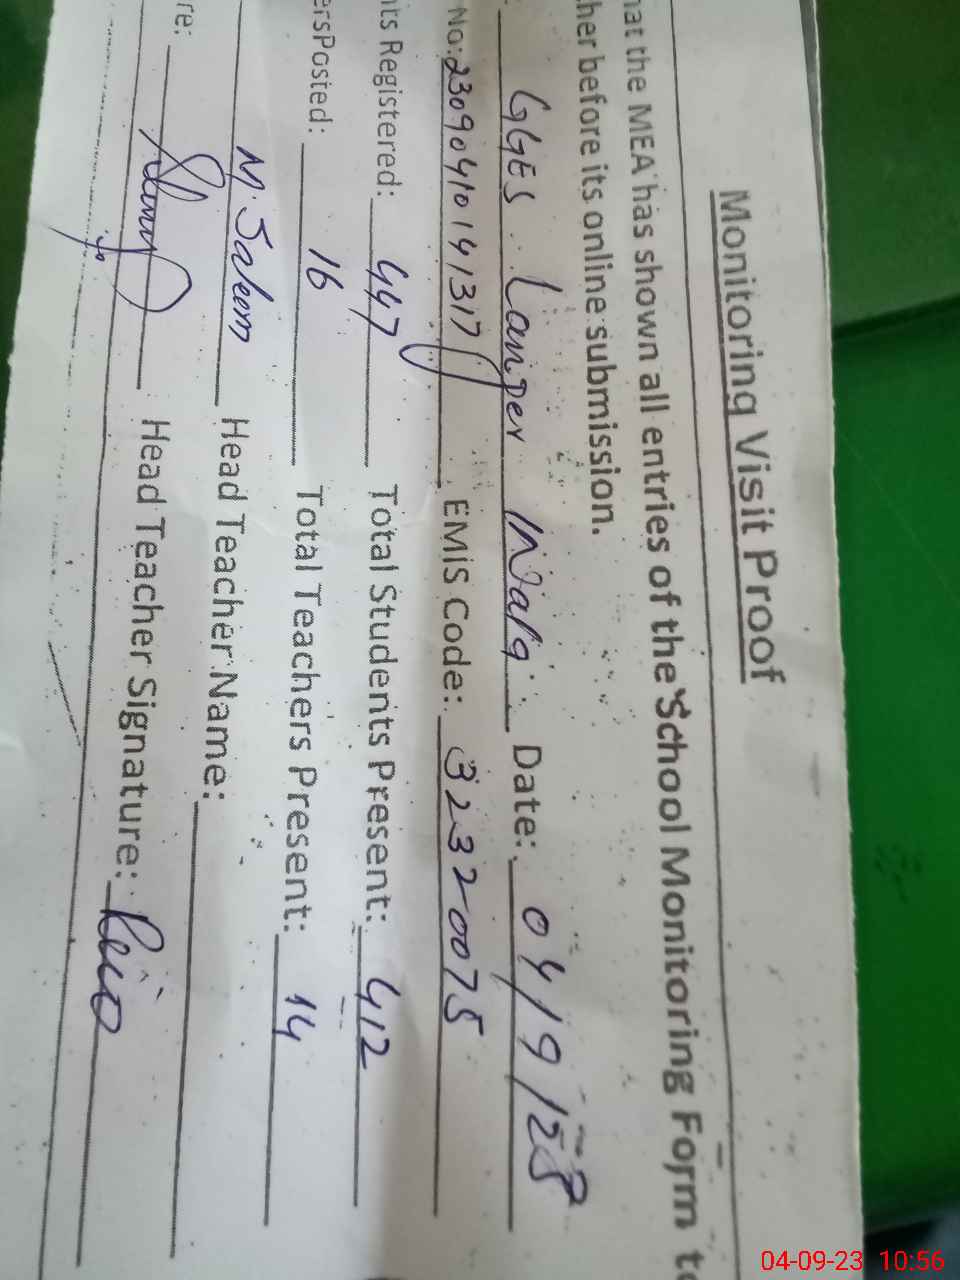 Monitoring Visit Proof
hat the MEA has shown all entries of the School Monitoring Form t
her before its online submission.
GGES Lander Wala Date: 04/9/23
No: 23090410141317 EMIS Code: 32320075
nts Registered: 447 Total Students Present: 412
ersPosted: 16 Total Teachers Present: 14
M. Saleem Head Teacher Name:
re: Head Teacher Signature:
04-09-23 10:56